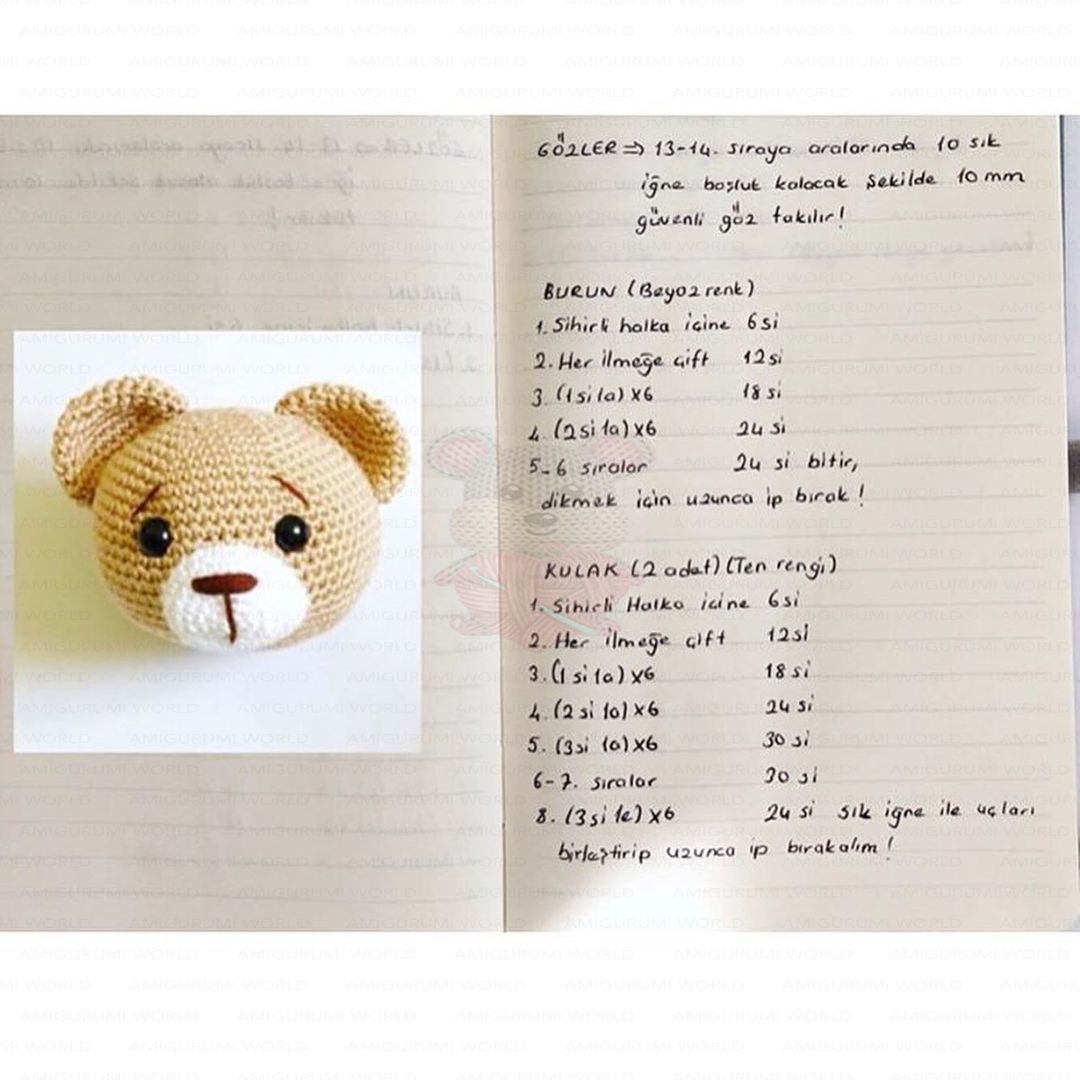 GÖZLER ⇒ 13-14. sıraya aralarında 10 sık
iğne boşluk kalacak şekilde 10 mm
güvenli göz takılır!
BURUN (Beyaz renk)
1. Sihirli halka içine 6 si
2. Her ilmeğe çift 12 si
3. (1 si 1a) x6 18 si
4. (2 si 1a) x6 24 si
5-6 sıralar 24 si bitir,
dikmek için uzunca ip bırak!
KULAK (2 adet) (Ten rengi)
1. Sihirli Halka içine 6 si
2. Her ilmeğe çift 12 si
3. (1 si 1a) x6 18 si
4. (2 si 1a) x6 24 si
5. (3 si 1a) x6 30 si
6-7. sıralar 30 si
8. (3 si 1e) x6 24 si sık iğne ile uçları
birleştirip uzunca ip bırakalım!
AMIGURUMI WORLD